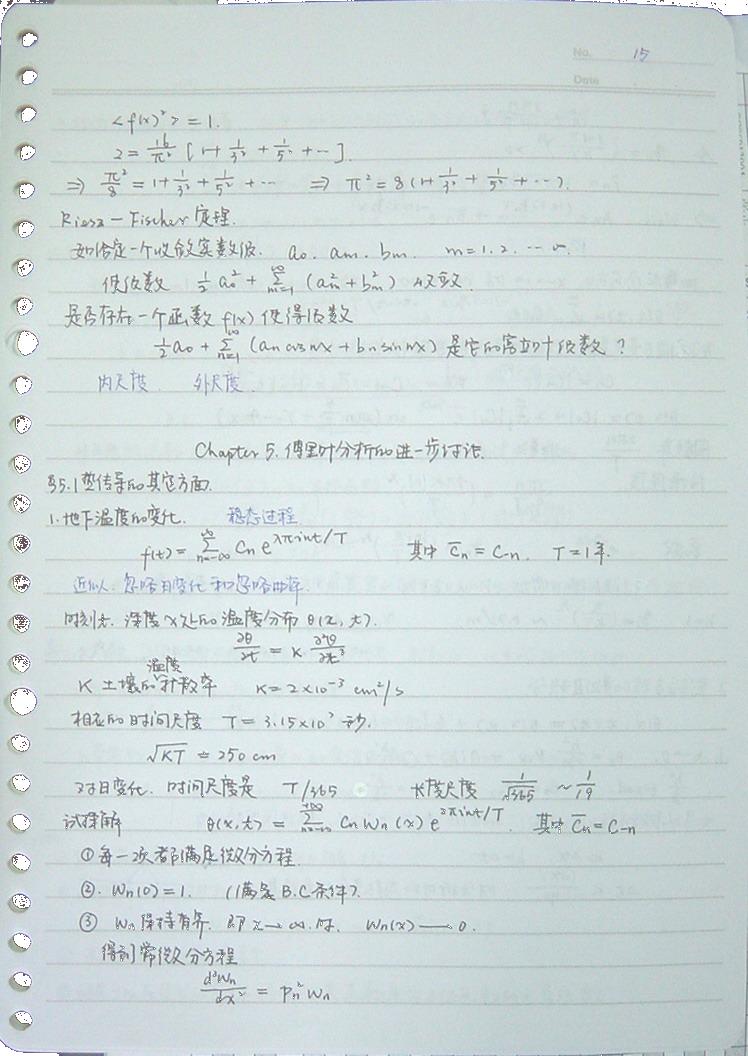 No. 15
Date
<f(x)²> = 1.
2 = 16/π² [1 + 1/3² + 1/5² + ⋯].
⇒ π²/8 = 1 + 1/3² + 1/5² + ⋯ ⇒ π² = 8(1 + 1/3² + 1/5² + ⋯).
Riesz — Fischer 定理.
如给定一个收敛实数级. a₀. aₘ. bₘ. m = 1. 2. ⋯ ∞.
使级数 ½a₀² + Σ_{m=1}^{∞} (aₘ² + bₘ²) 收敛.
是否存在一个函数 f(x) 使得级数
½a₀ + Σ_{n=1}^{∞} (aₙcosnx + bₙsinnx) 是它的富立叶级数?
内尺度. 外尺度.
Chapter 5. 傅里叶分析的进一步讨论.
§5.1 热传导的其它方面.
1. 地下温度的变化. 稳态过程.
f(t) = Σ_{n=-∞}^{∞} Cₙ e^{2πint/T} 其中 C̄ₙ = C₋ₙ. T = 1年.
近似. 忽略日变化和忽略曲率.
时刻t. 深度x处的温度分布 θ(x, t).
∂θ/∂t = K ∂²θ/∂x²
温度
K 土壤的扩散率 K = 2×10⁻³ cm²/s
相应的时间尺度 T = 3.15×10⁷ 秒.
√KT = 250 cm
对日变化. 时间尺度是 T/365 长度尺度 1/√365 ~ 1/19
试探解 θ(x, t) = Σ_{n=-∞}^{+∞} Cₙ Wₙ(x) e^{2πint/T}. 其中 C̄ₙ = C₋ₙ
① 每一次都满足微分方程.
②. Wₙ(0) = 1. (满足B.C条件).
③ Wₙ 保持有界. 即 x → ∞. 时. Wₙ(x) → 0.
得到常微分方程
d²Wₙ/dx² = pₙ² Wₙ